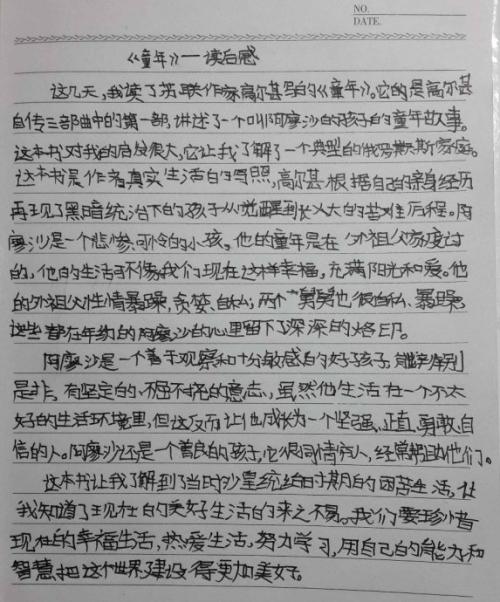 NO.
DATE.
《童年》——读后感
这几天,我读了苏联作家高尔基写的《童年》。它的是高尔基
自传三部曲中的第一部,讲述了一个叫阿廖沙的孩子的童年故事。
这本书对我的启发很大,它让我了解了一个典型的俄罗斯家庭。
这本书是作者真实生活的写照,高尔基根据自己的亲身经历
再现了黑暗统治下的孩子从觉醒到长大的苦难历程。阿
廖沙是一个悲惨、可怜的小孩。他的童年是在外祖父家度过
的,他的生活不像我们现在这样幸福,充满阳光和爱。他
的外祖父性情暴躁,贪婪、自私;两个舅舅也很自私、暴躁。
这些都在年幼的阿廖沙的心里留下了深深的烙印。
阿廖沙是一个善于观察和十分敏感的好孩子,能辨别
是非,有坚定的、不屈不挠的意志,虽然他生活在一个不太
好的生活环境里,但这反而让他成长为一个坚强、正直、勇敢、自
信的人。阿廖沙还是一个善良的孩子,它很同情穷人,经常帮助他们。
这本书让我了解到了当时沙皇统治时期的困苦生活,让
我知道了现在的美好生活的来之不易。我们要珍惜
现在的幸福生活,热爱生活,努力学习,用自己的能力和
智慧把这个世界建设得更加美好。